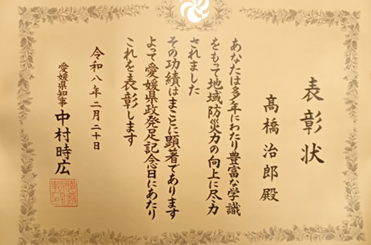 表彰状
髙橋治郎殿
あなたは多年にわたり豊富な学識
をもって地域防災力の向上に尽力
されました
その功績はまことに顕著であります
よって愛媛県政発足記念日にあたり
これを表彰します
令和八年二月二十日
愛媛県知事 中村時広